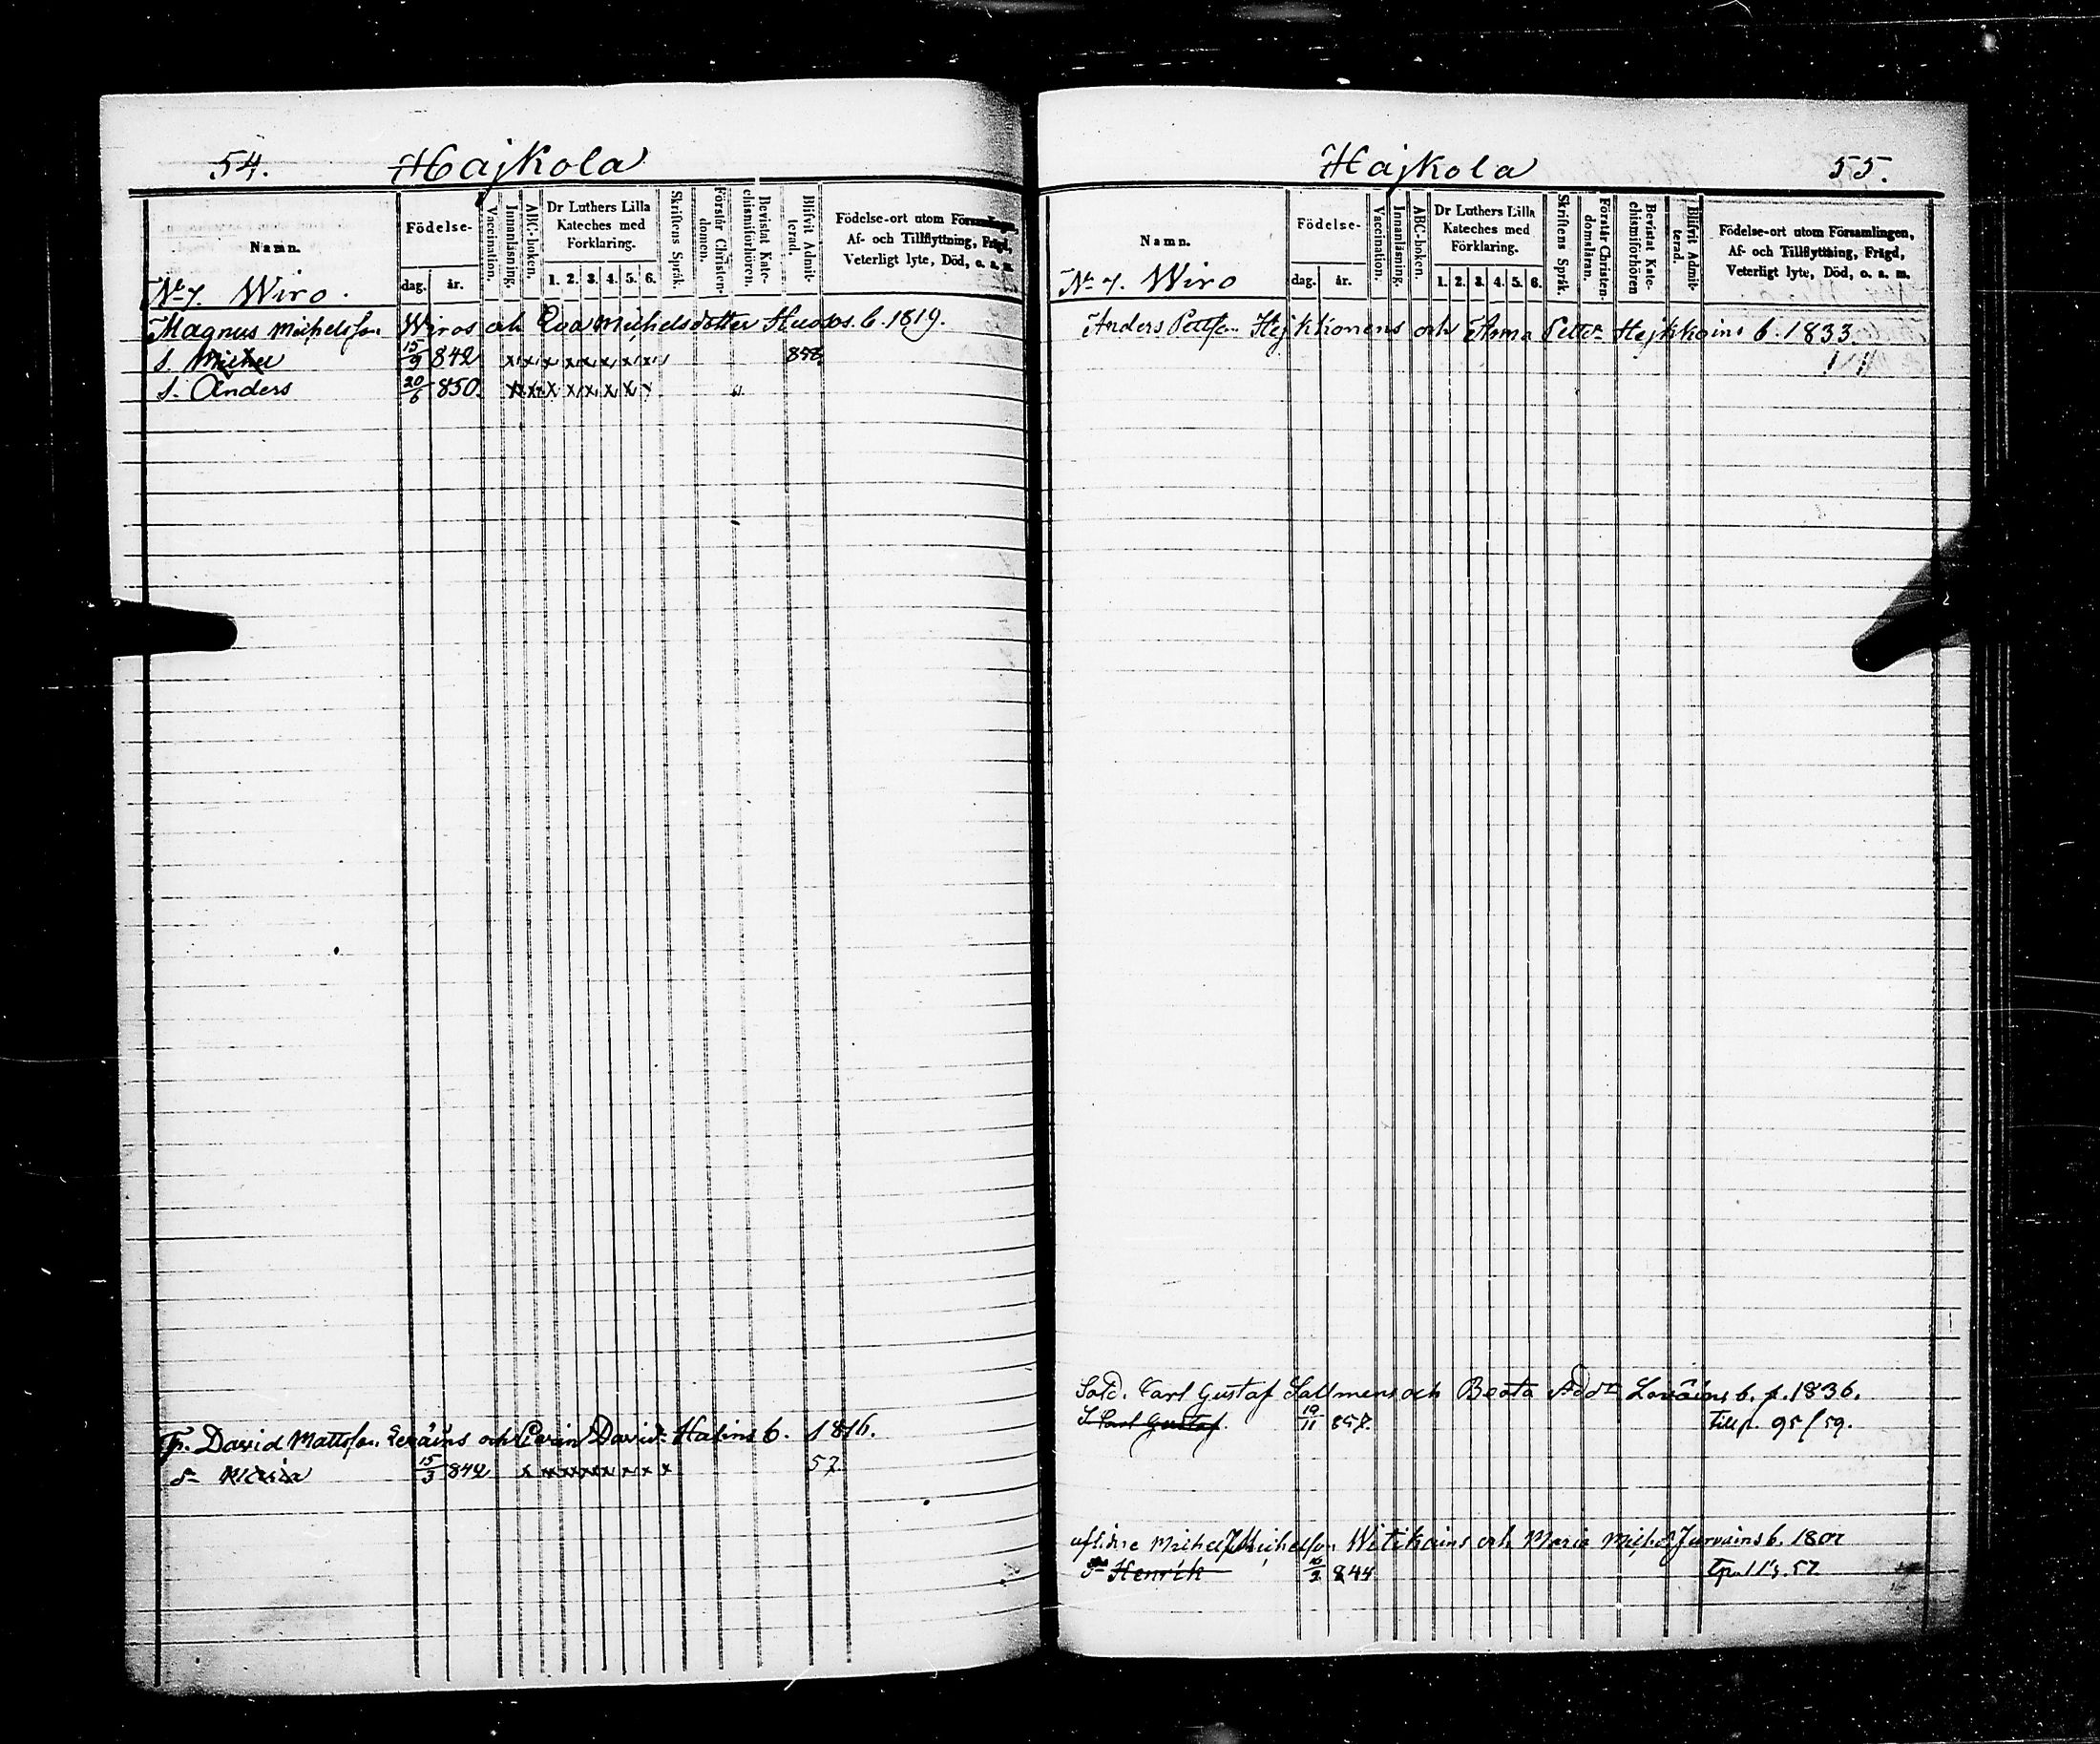 54. Hajkola
Namn.
Födelse-
dag. år.
Vaccination.
Innanläsning.
ABC-boken.
Dr Luthers Lilla
Kateches med
Förklaring.
1. 2. 3. 4. 5. 6.
Skriftens Språk.
Förstår Christen-
domen.
Bevistat Kate-
chismiförhören.
Blifvit Admit-
terad.
Födelse-ort utom Församlingen,
Af- och Tillflyttning, Frägd,
Veterligt lyte, Död, o. s. m.
No 7. Wiro.
Magnus Michelsson Wiros och Eva Michelsdotter b. 1819.
s. Michel 15/9 842 x x x x x x x x
s. Anders 20/6 850. x x x x x x x x
Tp. David Mattsson och Carin David Halins b. 1816.
15/3 842 x x x x x x x x 57
Hajkola 55.
Namn.
Födelse-
dag. år.
Vaccination.
Innanläsning.
ABC-boken.
Dr Luthers Lilla
Kateches med
Förklaring.
1. 2. 3. 4. 5. 6.
Skriftens Språk.
Förstår Christen-
domsläran.
Bevistat Kate-
chismiförhören
Blifvit Admit-
terad.
Födelse-ort utom Församlingen,
Af- och Tillflyttning, Frägd,
Veterligt lyte, Död, o. s. m.
No 7. Wiro
Anders Pettson Hejkkonens och Anna Pettr Hejkkoins b. 1833.
Sold. Carl Gustaf Sallmens och Beata Addr b. p. 1836.
S. Carl Gustaf 19/11 857. till p. 95/59.
aflidne Michel Michelson Witikains och Maria Mich.dr b.
Henrik 844 57